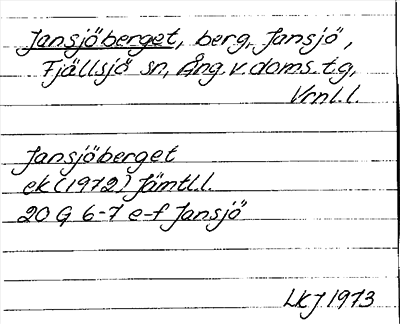 Jansjöberget, berg, Jansjö,
Fjällsjö sn, Ång. v. doms. tg,
Vrnl. l.
Jansjöberget
ek (1972) Jämtl. l.
20 G 6-7 e-f Jansjö
LKJ 1973